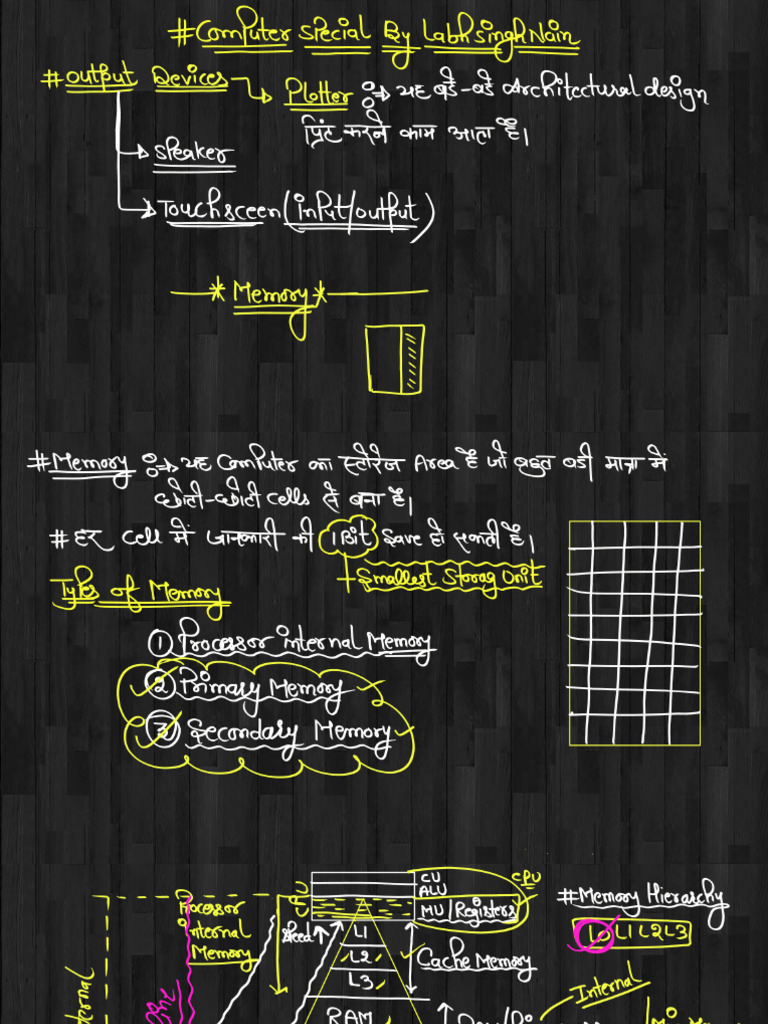 #Computer Special By Labh Singh Nain
#Output Devices → Plotter :⇒ यह बड़े-बड़े Architectural design
प्रिंट करने काम आता है।
→ Speaker
→ Touchsceen (input/output)
* Memory *
#Memory :⇒ यह Computer का स्टोरेज Area है जो बहुत बडी मात्रा में
छोटी-छोटी cells से बना है।
# हर cell में जानकारी की 1 Bit Save हो सकती है।
Smallest Storag Unit
Types of Memory
① Processor internal Memory
② Primary Memory
③ Secondary Memory
CU
ALU
CPU
MU/Registers
#Memory Hierarchy
L0 L1 L2 L3
Processor
internal
Memory
Speed ↑
L1
L2
L3
Cache Memory
Internal
RAM